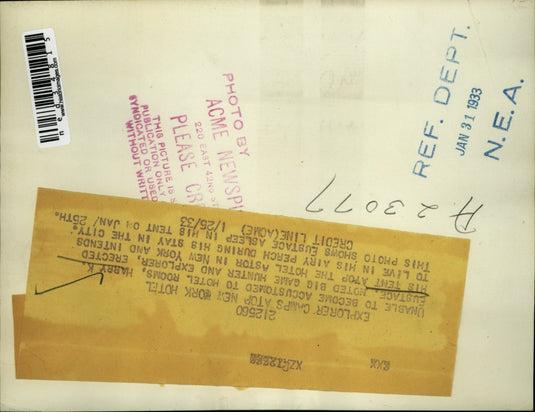 REF. DEPT.
JAN 31 1933
N.E.A.
PHOTO BY
ACME
220 EAST 42ND ST
PLEASE
THIS PICTURE IS
PUBLICATION ONLY
SYNDICATED OR USED
WITHOUT
A23077
212560
EXPLORER CAMPS ATOP NEW YORK HOTEL
UNABLE TO BECOME ACCUSTOMED TO HOTEL ROOMS, HARRY K.
EUSTACE NOTED BIG GAME HUNTER AND EXPLORER, ERECTED
HIS TENT ATOP THE HOTEL ASTOR IN NEW YORK AND INTENDS
TO LIVE IN HIS AIRY PERCH DURING HIS STAY IN THE CITY.
THIS PHOTO SHOWS EUSTACE ASLEEP IN HIS TENT ON JAN/ 25TH.
CREDIT LINE(ACME) 1/25/33